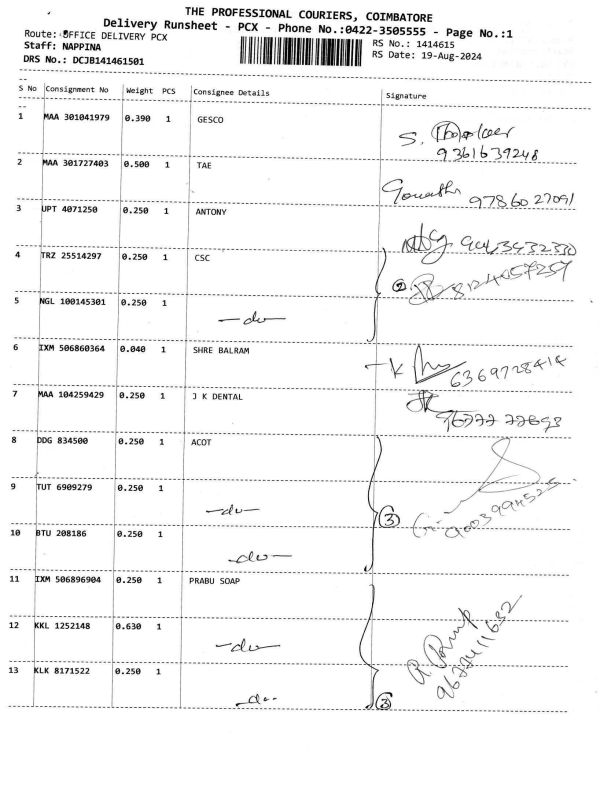 THE PROFESSIONAL COURIERS, COIMBATORE
Delivery Runsheet - PCX - Phone No.:0422-3505555 - Page No.:1
Route: OFFICE DELIVERY PCX
RS No.: 1414615
Staff: NAPPINA
RS Date: 19-Aug-2024
DRS No.: DCJB141461501
S No Consignment No Weight PCS Consignee Details Signature
1 MAA 301041979 0.390 1 GESCO
S.
9361639248
2 MAA 301727403 0.500 1 TAE
Gowathi 9786027091
3 UPT 4071250 0.250 1 ANTONY
4 TRZ 25514297 0.250 1 CSC
② 8124057257
5 NGL 100145301 0.250 1
-do-
6 IXM 506860364 0.040 1 SHRE BALRAM
6369728414
7 MAA 104259429 0.250 1 J K DENTAL
8 DDG 834500 0.250 1 ACOT
9 TUT 6909279 0.250 1
-do-
③ 9003994525
10 BTU 208186 0.250 1
-do-
11 IXM 506896904 0.250 1 PRABU SOAP
12 KKL 1252148 0.630 1
-do-
9677411632
13 KLK 8171522 0.250 1
-do-
③